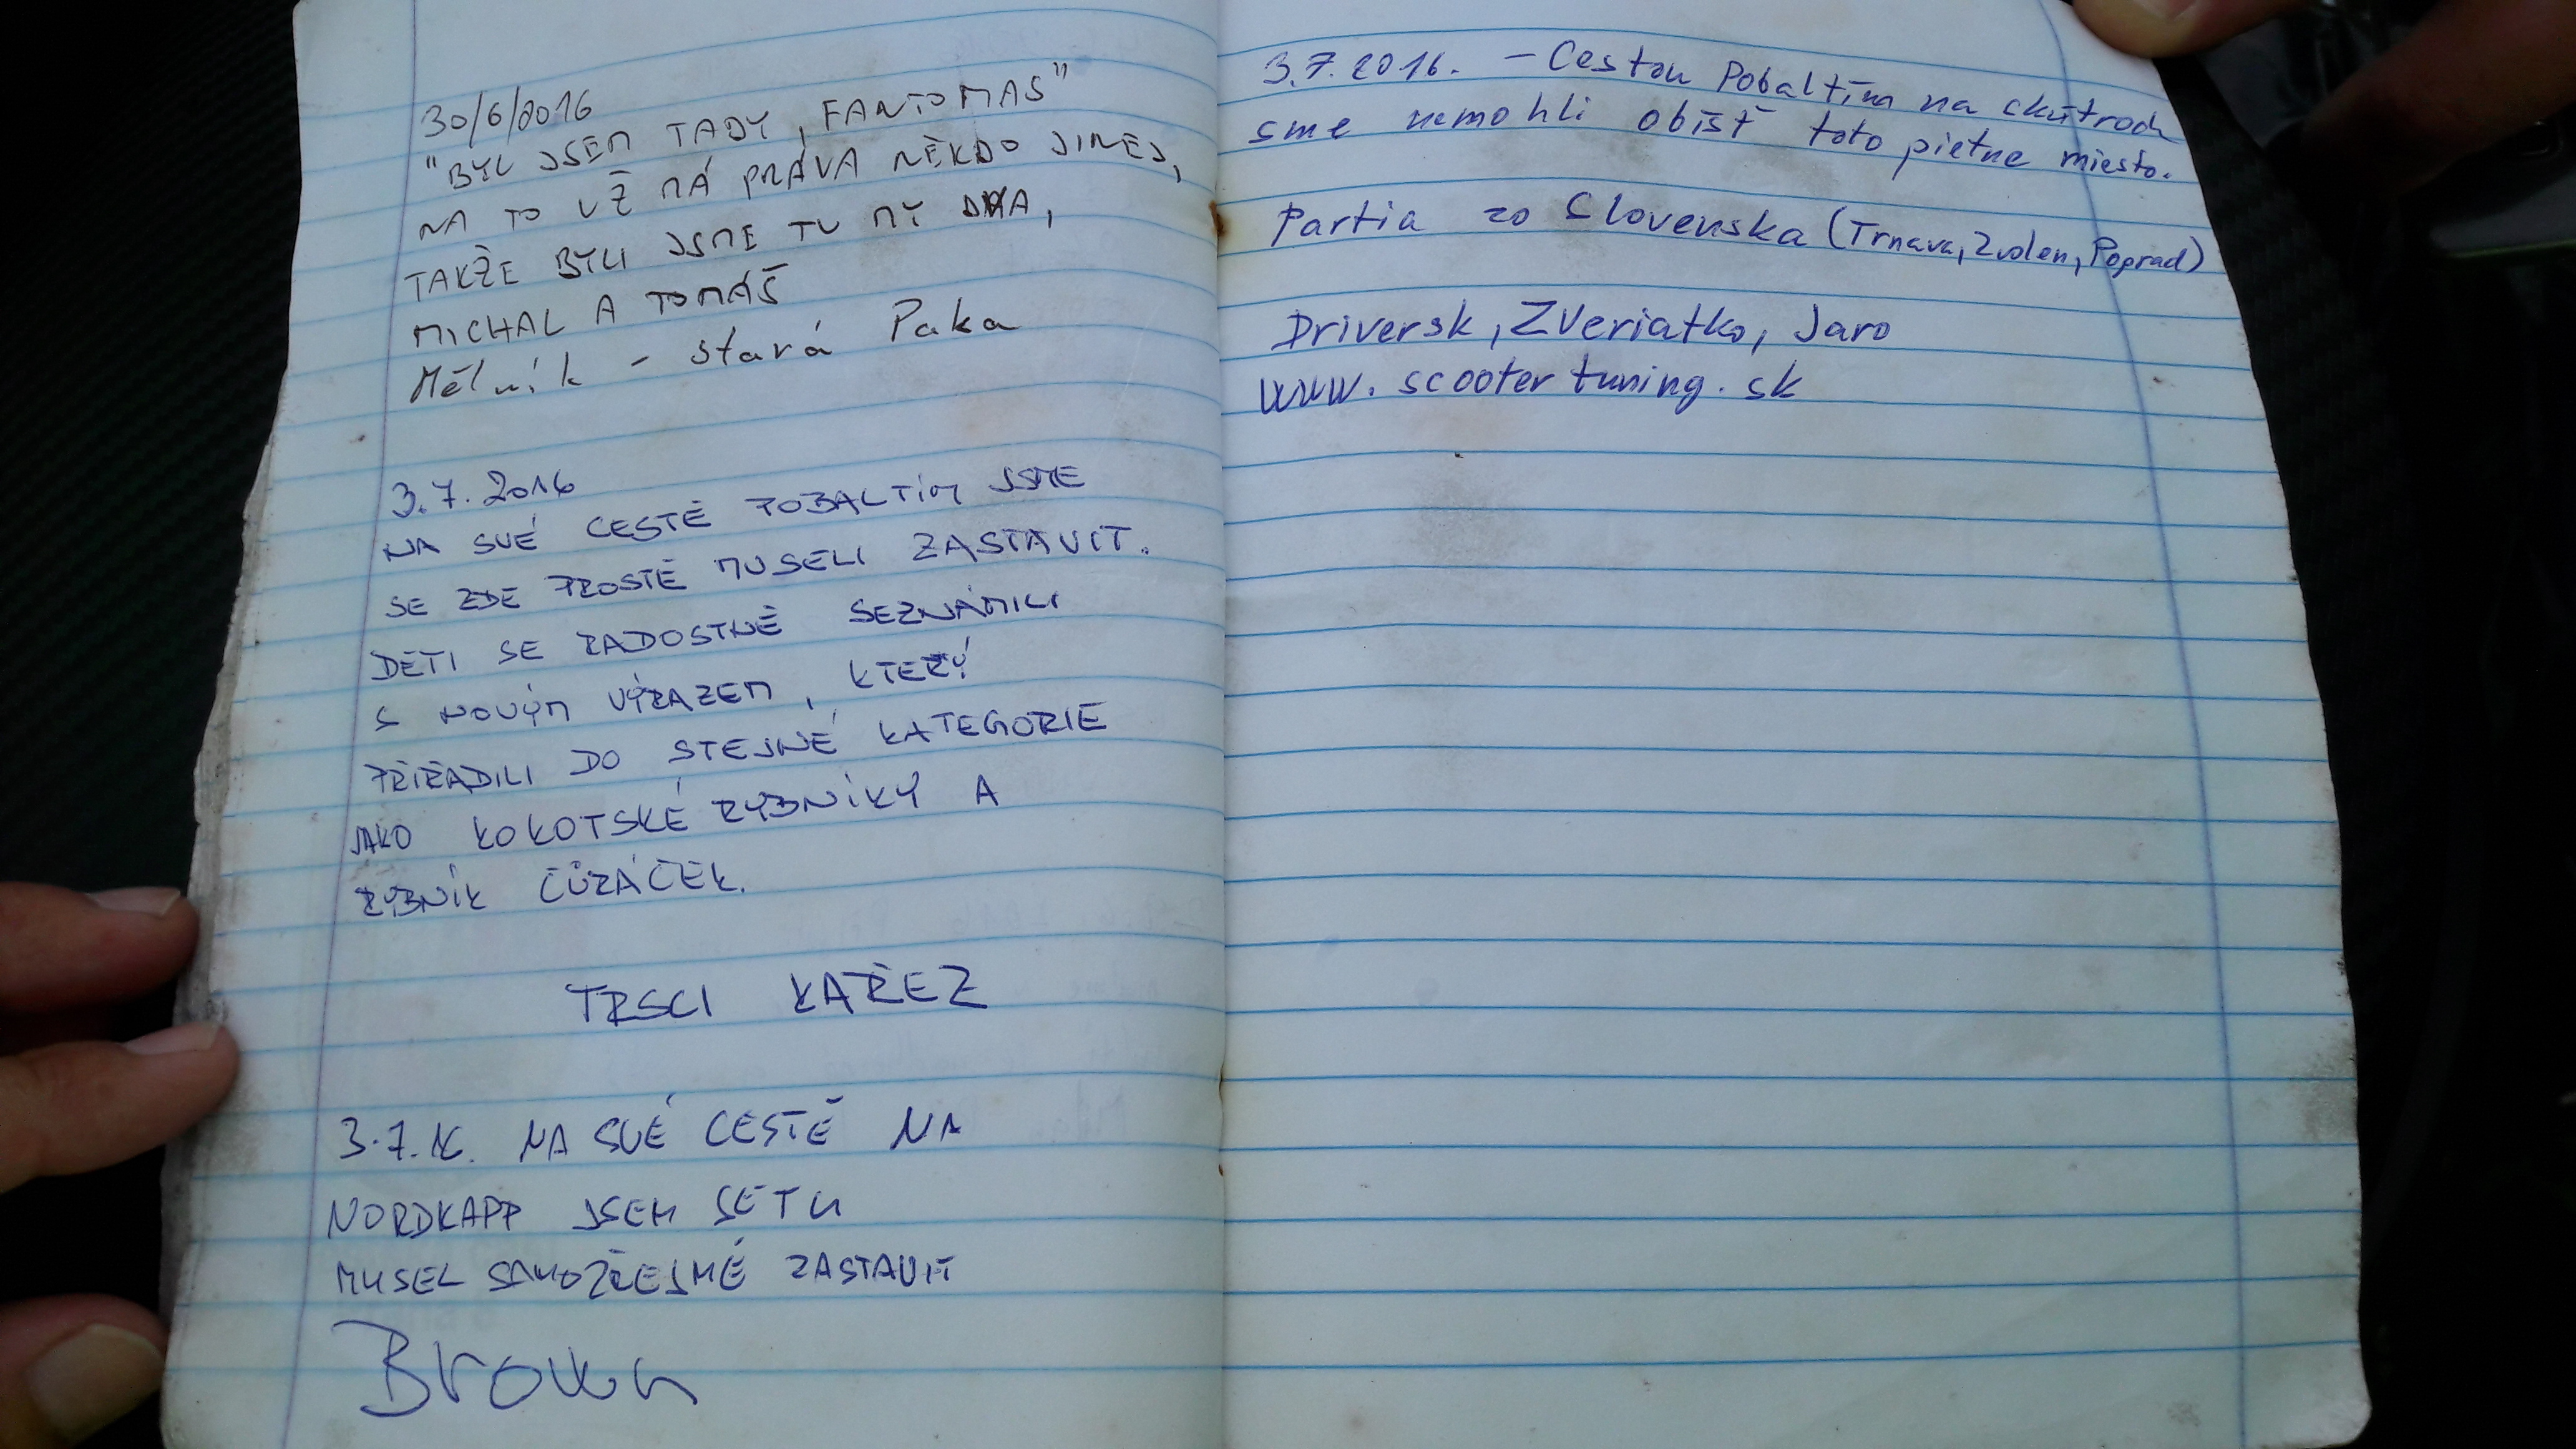 30/6/2016
"BYL JSEM TADY, FANTOMAS"
NA TO UŽ MÁ PRÁVA NĚKDO JINEJ,
TAKŽE BYLI JSME TU MY DVA,
MICHAL A TOMÁŠ
Mělník - Stará Paka
3.7.2016
NA SVÉ CESTĚ POBALTÍM JSME
SE ZDE PROSTĚ MUSELI ZASTAVIT.
DĚTI SE RADOSTNĚ SEZNÁMILI
S NOVÝM VÝRAZEM, KTERÝ
PŘIŘADILI DO STEJNÉ KATEGORIE
JAKO KOKOTSKÉ RYBNÍKY A
RYBNÍK ČŮRÁČEK.
TRSCI KAŘEZ
3.7.16. NA SVÉ CESTĚ NA
NORDKAPP JSEM SE TU
MUSEL SAMOZŘEJMĚ ZASTAVIT
Brown
3.7.2016. - Cestou Pobaltím na skútroch
sme nemohli obísť toto pietne miesto.
Partia zo Slovenska (Trnava, Zvolen, Poprad)
Driversk, Zveriatko, Jaro
www.scootertuning.sk